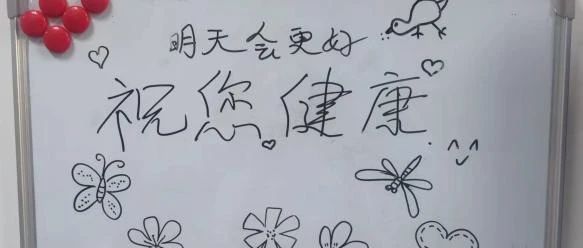 明天会更好
祝您健康